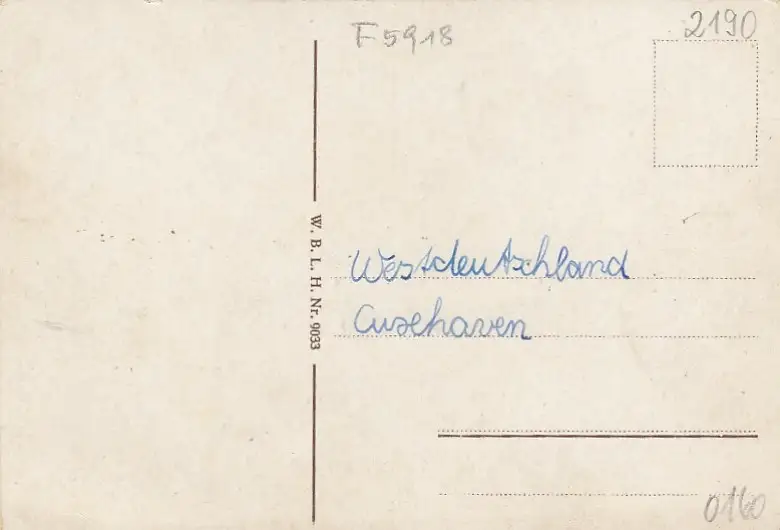 F5918
2190
W. B. L. H. Nr. 9033
Westdeutschland
Cuxehaven
0160